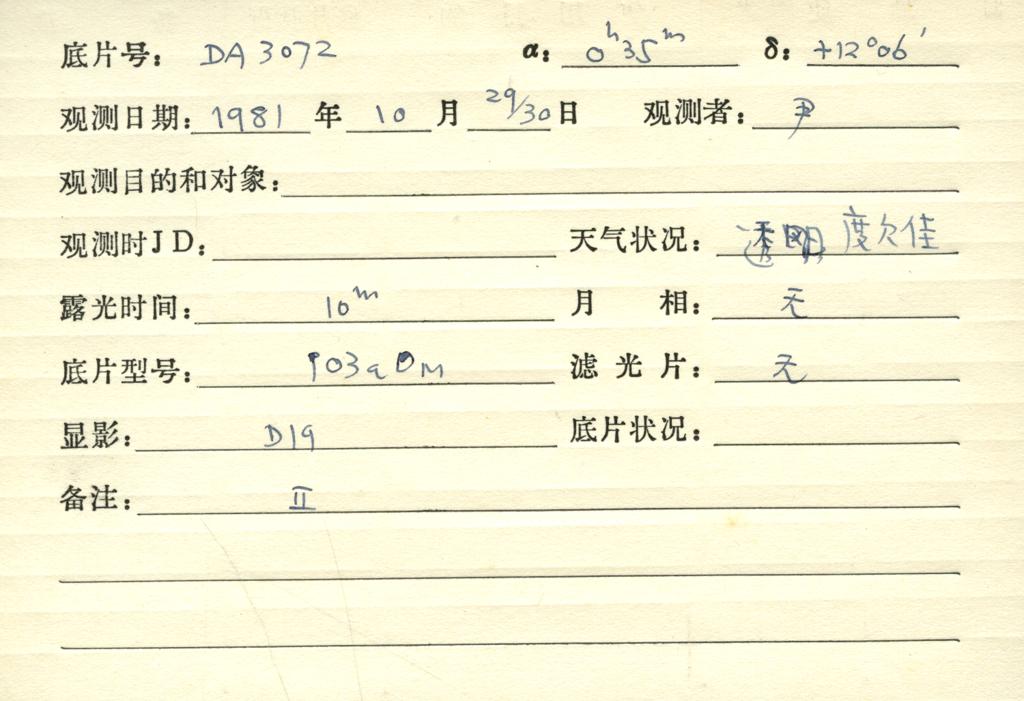 底片号: DA 3072 α: 0ʰ35ᵐ δ: +12°06′
观测日期: 1981 年 10 月 29/30 日 观测者: 尹
观测目的和对象:
观测时JD: 天气状况: 透明度欠佳
露光时间: 10ᵐ 月 相: 无
底片型号: 103aOm 滤光片: 无
显影: D19 底片状况:
备注: II